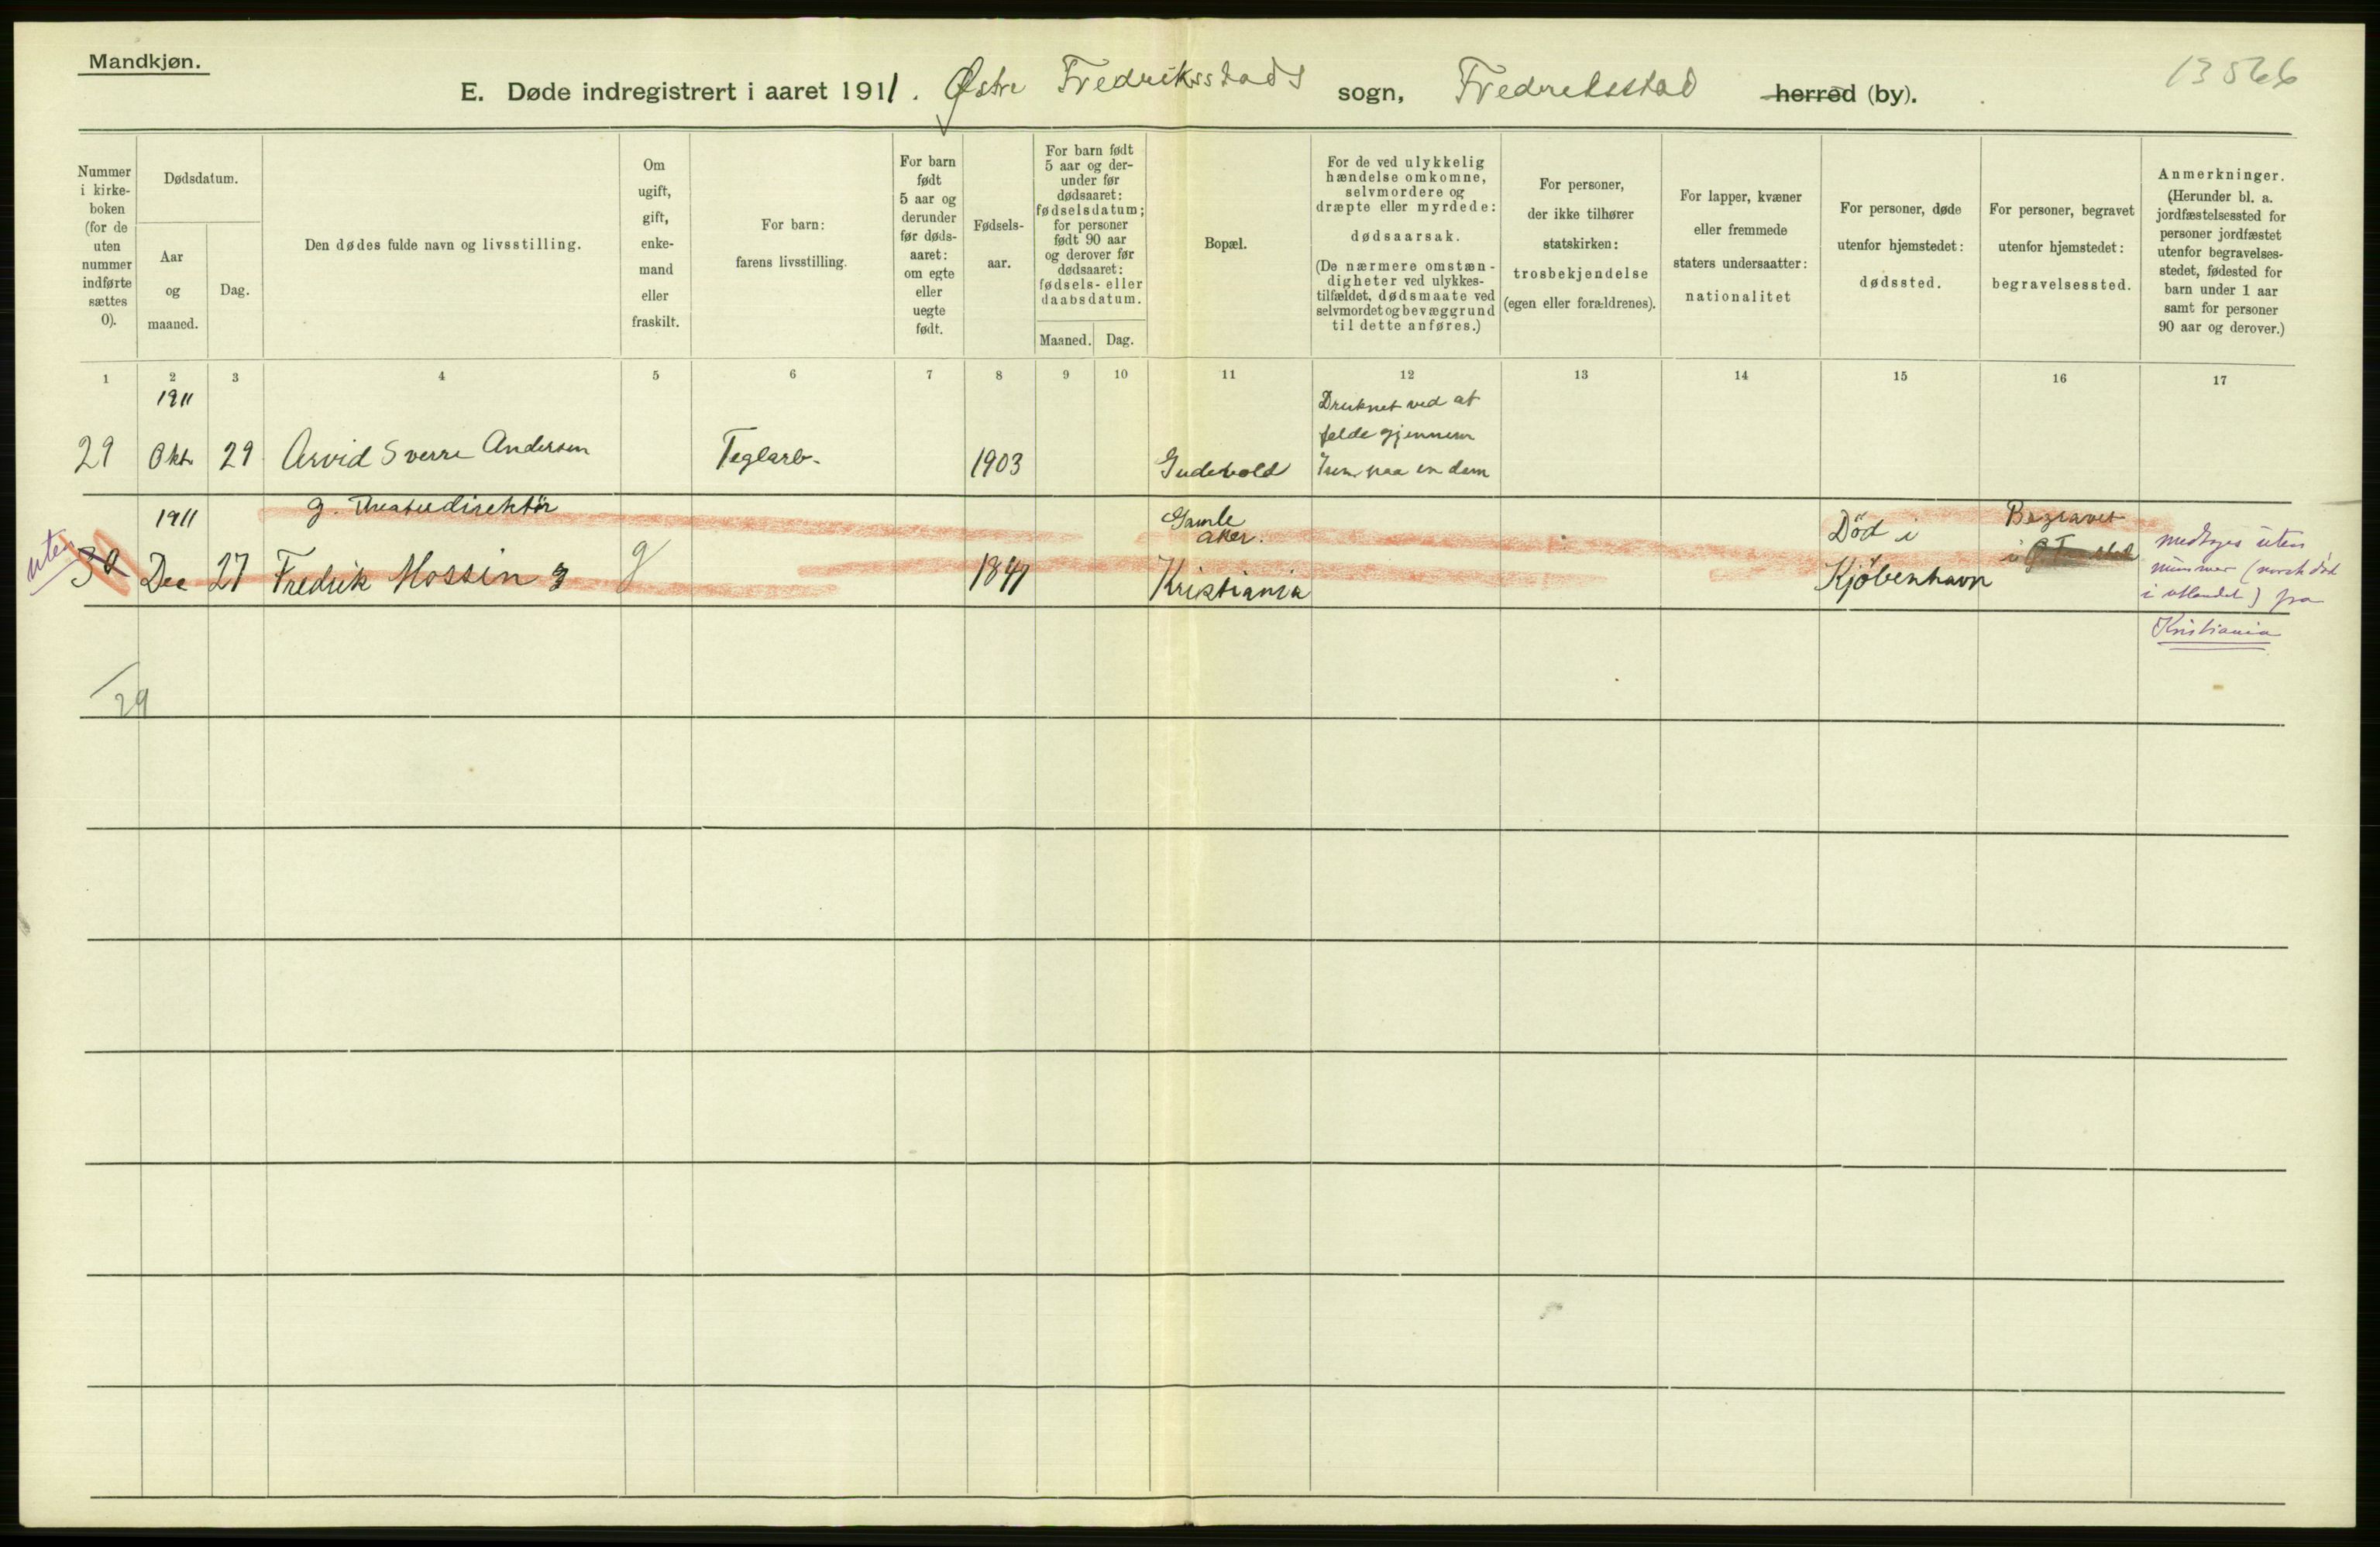 Mandkjøn.
E. Døde indregistrert i aaret 1911. Østre Fredriksstads sogn, Fredriksstad herred (by).
13566
Nummer
i kirke-
boken
(for de
uten
nummer
indførte
sættes
0).
Dødsdatum.
Aar
og
maaned.
Dag.
Den dødes fulde navn og livsstilling.
Om
ugift,
gift,
enke-
mand
eller
fraskilt.
For barn:
farens livsstilling.
For barn
født
5 aar og
derunder
før døds-
aaret:
om egte
eller
uegte
født.
Fødsels-
aar.
For barn født
5 aar og der-
under før
dødsaaret:
fødselsdatum;
for personer
født 90 aar
og derover før
dødsaaret:
fødsels- eller
daabsdatum.
Maaned.
Dag.
Bopæl.
For de ved ulykkelig
hændelse omkomne,
selvmordere og
dræpte eller myrdede:
dødsaarsak.
(De nærmere omstæn-
digheter ved ulykkes-
tilfældet, dødsmaate ved
selvmordet og bevæggrund
til dette anføres.)
For personer,
der ikke tilhører
statskirken:
trosbekjendelse
(egen eller forældrenes).
For lapper, kvæner
eller fremmede
staters undersaatter:
nationalitet
For personer, døde
utenfor hjemstedet:
dødssted.
For personer, begravet
utenfor hjemstedet:
begravelsessted.
Anmerkninger.
(Herunder bl. a.
jordfæstelsessted for
personer jordfæstet
utenfor begravelses-
stedet, fødested for
barn under 1 aar
samt for personer
90 aar og derover.)
1 2 3 4 5 6 7 8 9 10 11 12 13 14 15 16 17
1911
29 Okt. 29 Arvid Sverre Andersen Teglarb. 1903 Gudebold
Druknet ved at
falde gjennem
paa en dam
uten
1911
g. Theaterdirektör
30 Dec 27 Fredrik Mossin g 1841
Gamle
Aker.
Kristiania
Död i
Kjöbenhavn
Begravet
i
medtages uten
nummer (norsk död
i utlandet) fra
Kristiania
29